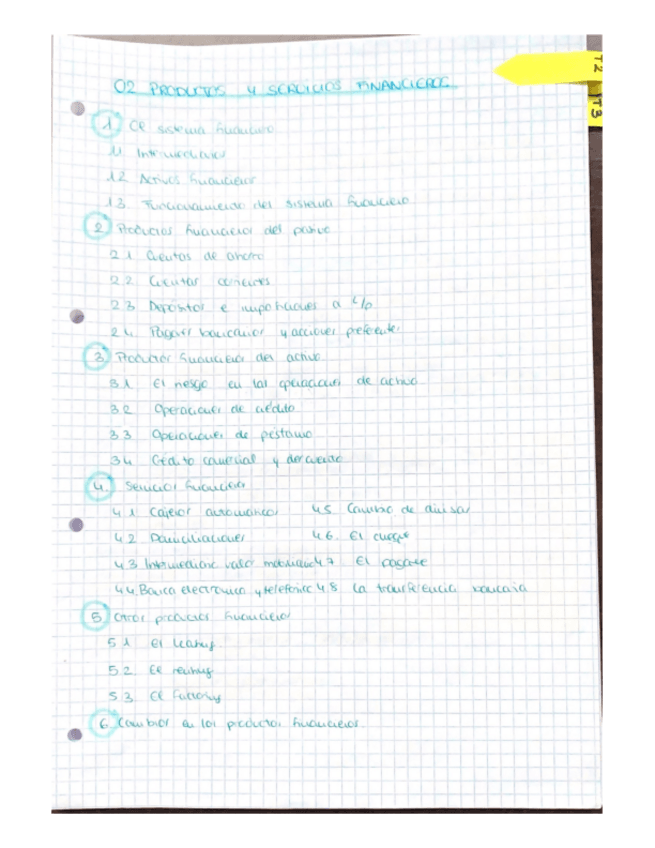 02 PRODUCTOS Y SERVICIOS FINANCIEROS
T2
T3
1 El sistema financiero
1.1 Intermediarios
1.2 Activos financieros
1.3 Funcionamiento del sistema financiero
2 Productos financieros del pasivo
2.1 Cuentas de ahorro
2.2 Cuentas corrientes
2.3 Depósitos e imposiciones a L/p
2.4 Pagarés bancarios y acciones preferentes
3 Productos financieros del activo
3.1 El riesgo en las operaciones de activo
3.2 Operaciones de crédito
3.3 Operaciones de préstamo
3.4 Crédito comercial y descuento
4. Servicios financieros
4.1 Cajeros automáticos 4.5 Cambio de divisas
4.2 Domiciliaciones 4.6. El cheque
4.3 Intermediario valor mobiliario 4.7 El pagaré
4.4. Banca electrónica y telefónica 4.8 La transferencia bancaria
5 Otros productos financieros
5.1 El leasing
5.2 El renting
5.3 El factoring
6. Cambios en los productos financieros.